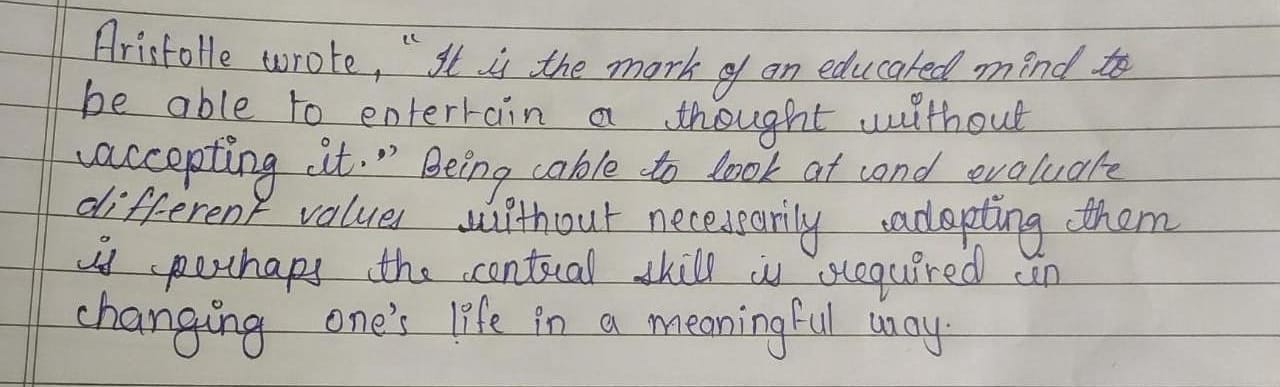 Aristotle wrote, "It is the mark of an educated mind to
be able to entertain a thought without
accepting it." Being able to look at and evaluate
different values without necessarily adopting them
is perhaps the central skill is required in
changing one's life in a meaningful way.